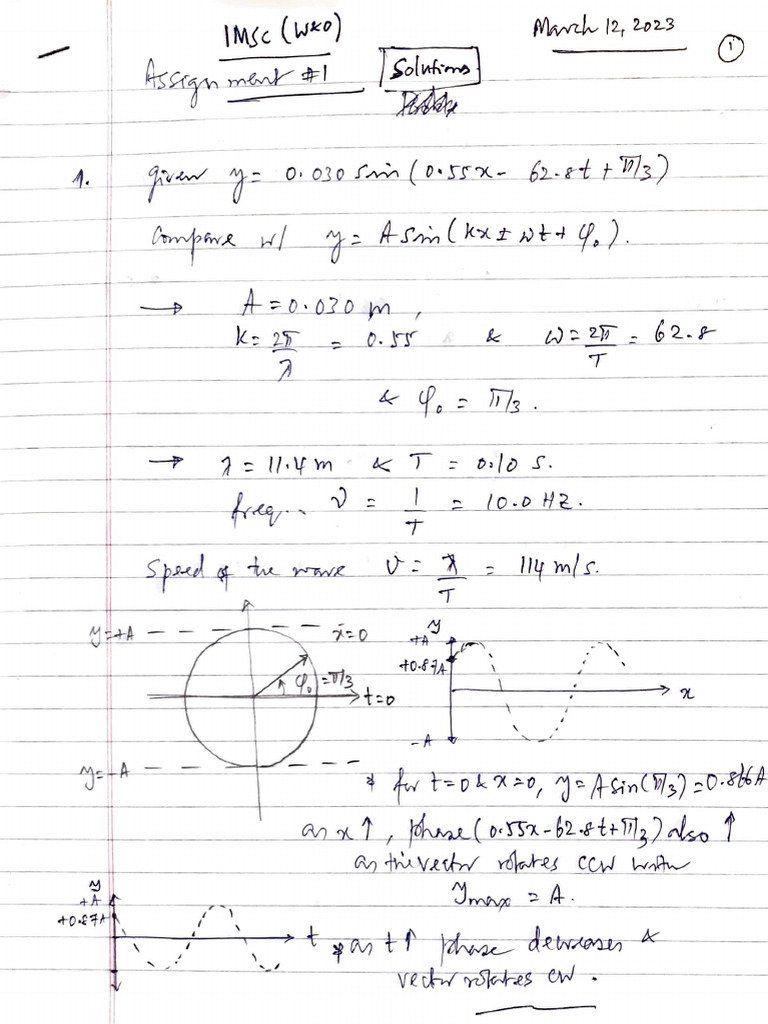 IMSC (W&O)
March 12, 2023
1
Assignment #1
Solutions
1. given y = 0.030 sin(0.55x - 62.8t + π/3)
Compare w/ y = A sin(kx ± ωt + φ₀).
→ A = 0.030 m,
k = 2π/λ = 0.55 & ω = 2π/T = 62.8
& φ₀ = π/3.
→ λ = 11.4 m & T = 0.10 s.
freq. ν = 1/T = 10.0 HZ.
Speed of the wave v = λ/T = 114 m/s.
y=+A
x=0
φ₀ = π/3
t=0
y=-A
y
+A
+0.87A
-A
x
* for t=0 & x=0, y = A sin(π/3) = 0.866A
as x↑, phase (0.55x - 62.8t + π/3) also ↑
as the vector rotates CCW with
ymax = A.
y
+A
+0.87A
t
* as t↑ phase decreases &
vector rotates CW.